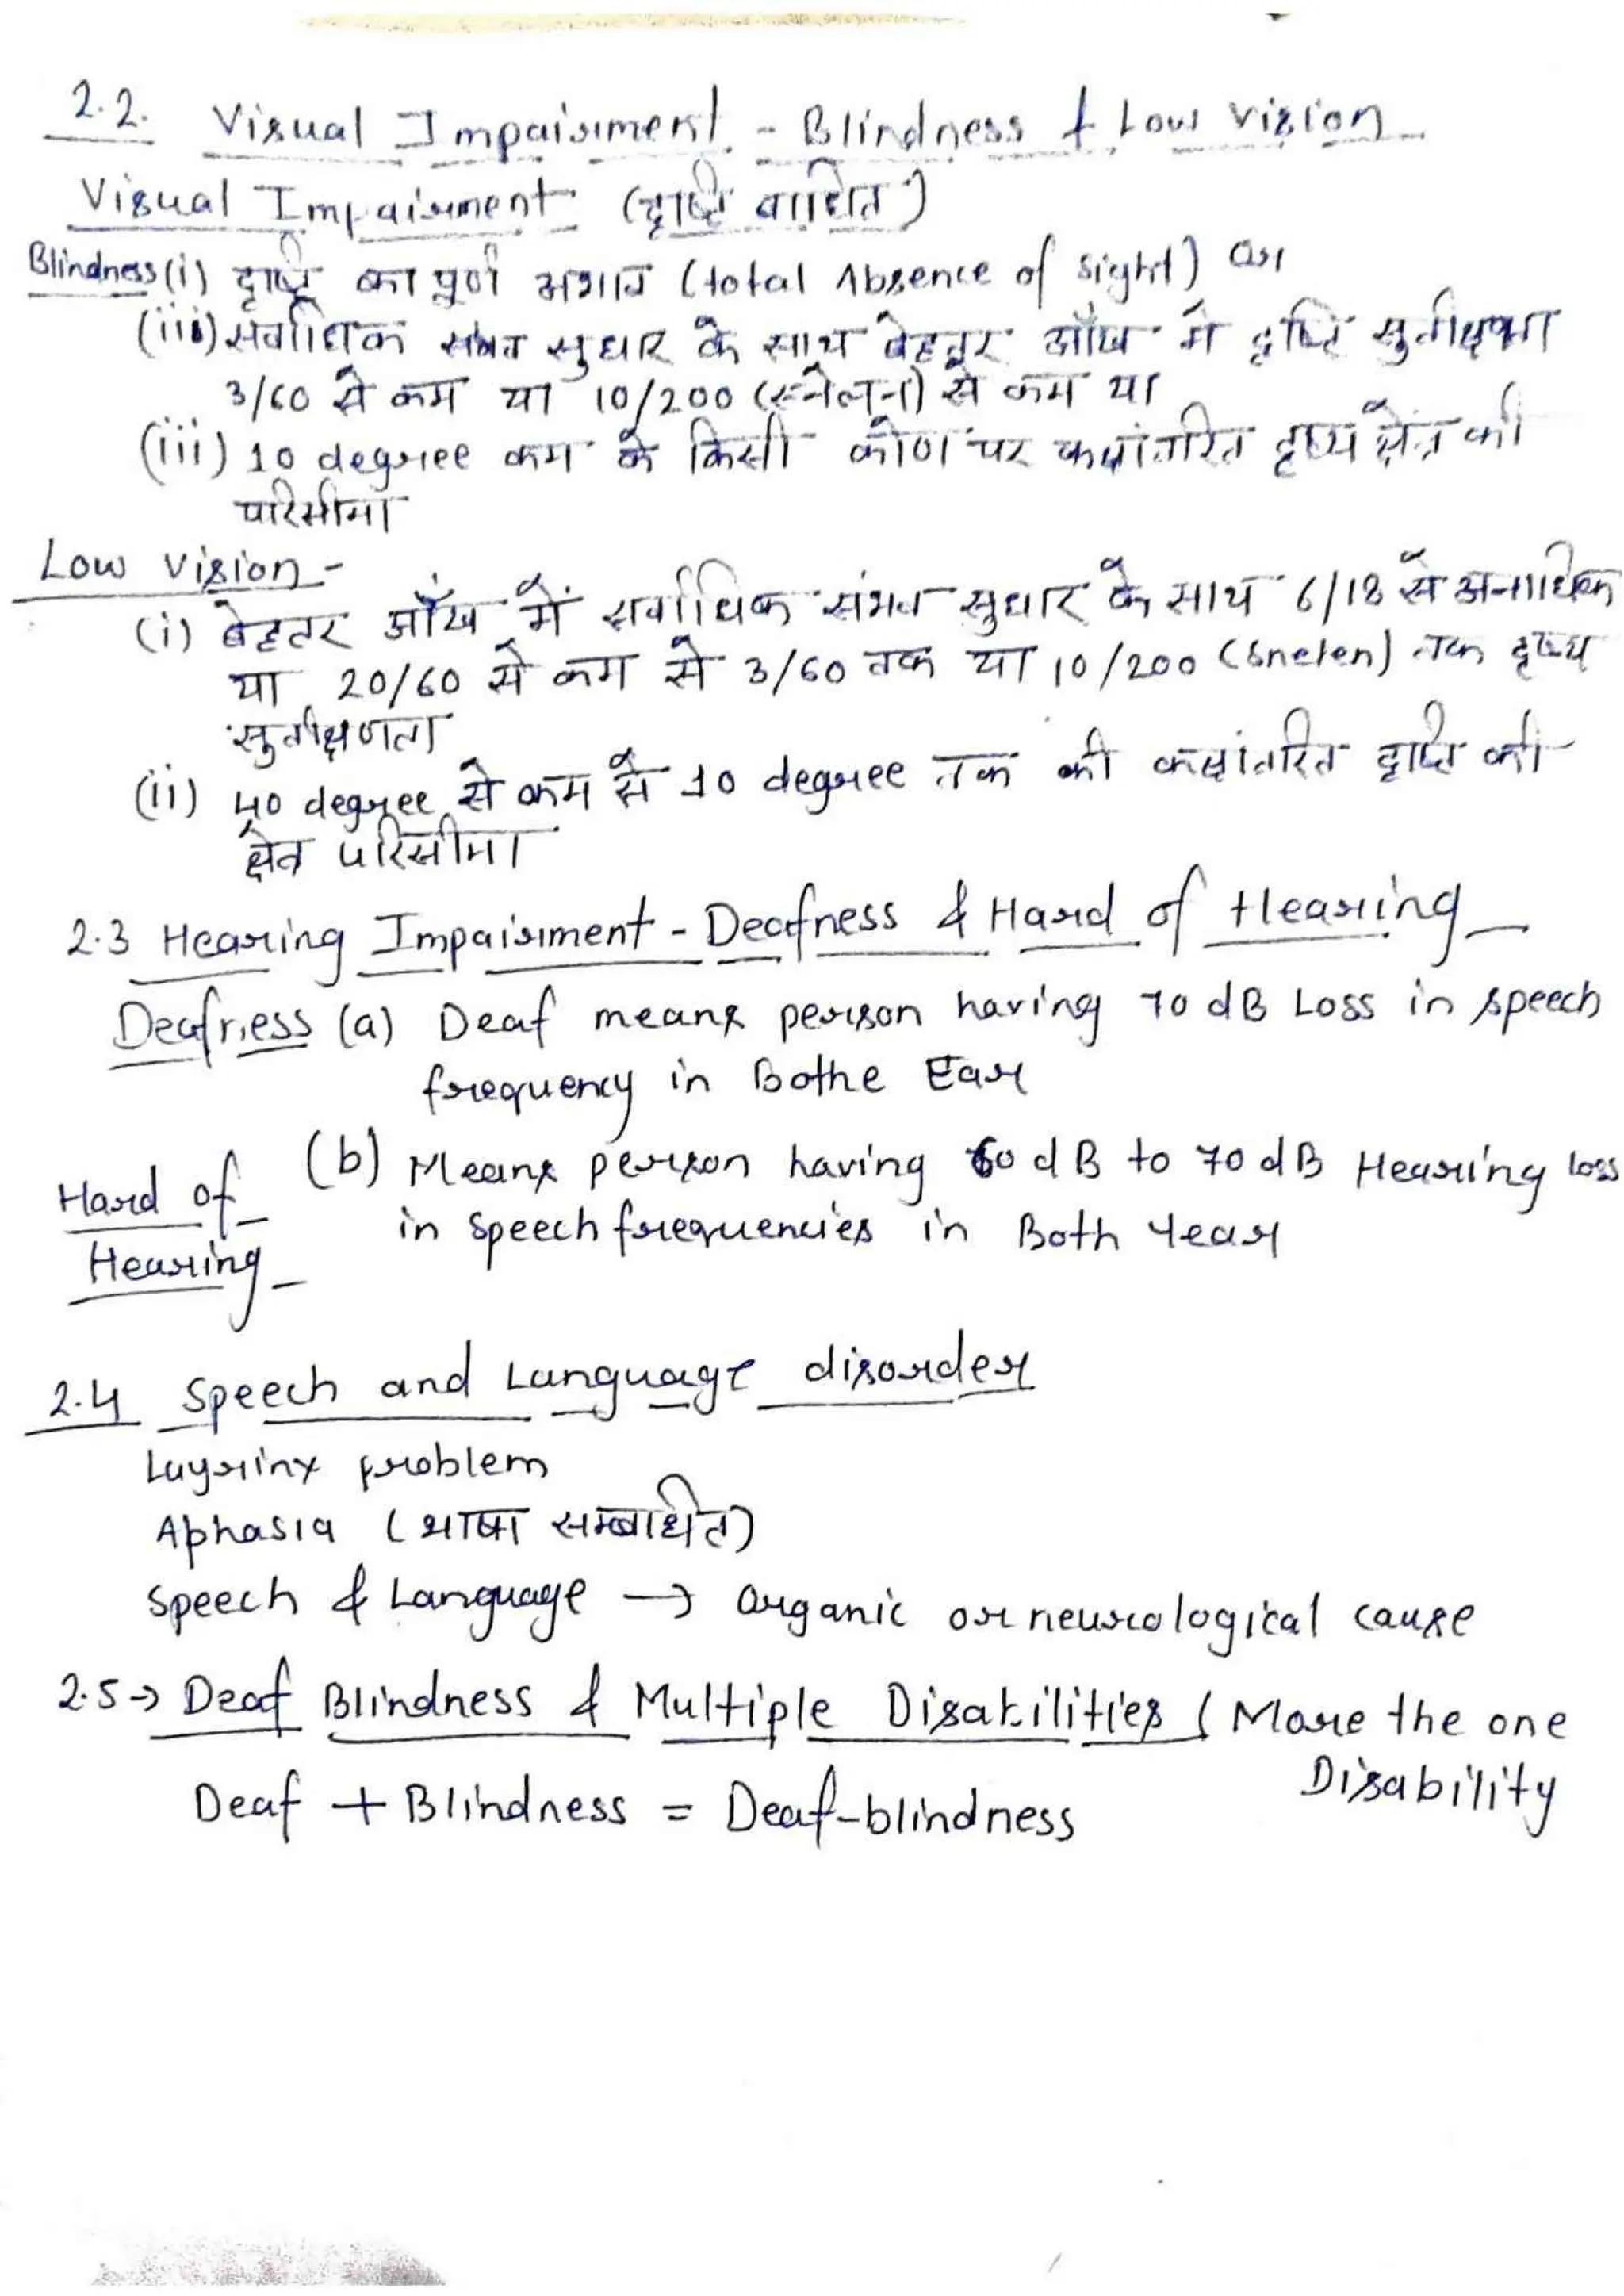 2.2. Visual Impairment - Blindness & Low Vision
Visual Impairment (दृष्टि बाधित)
Blindness (i) दृष्टि का पूर्ण अभाव (total Absence of sight) or
(iii) सर्वाधिक संभव सुधार के साथ बेहतर आँख में दृष्टि सुतीक्ष्णता
3/60 से कम या 10/200 (स्नेलन) से कम या
(iii) 10 degree कम के किसी कोण पर कक्षांतरित दृश्य क्षेत्र की
परिसीमा
Low Vision -
(i) बेहतर आँख में सर्वाधिक संभव सुधार के साथ 6/18 से अनाधिक
या 20/60 से कम से 3/60 तक या 10/200 (Snelen) तक दृश्य
सुतीक्षणता
(ii) 40 degree से कम से 10 degree तक की कक्षांतरित दृष्टि की
क्षेत्र परिसीमा
2.3 Hearing Impairment - Deafness & Hard of Hearing
Deafness (a) Deaf means person having 70 dB Loss in speech
frequency in Bothe Ear
Hard of Hearing (b) Means person having 60 dB to 70 dB Hearing loss
in speech frequencies in Both Year
2.4 Speech and Language disorder
Layrinx problem
Aphasia (भाषा सम्बाधित)
Speech & Language → Organic or neurological cause
2.5 → Deaf Blindness & Multiple Disabilities ( More the one
Disability
Deaf + Blindness = Deaf-blindness